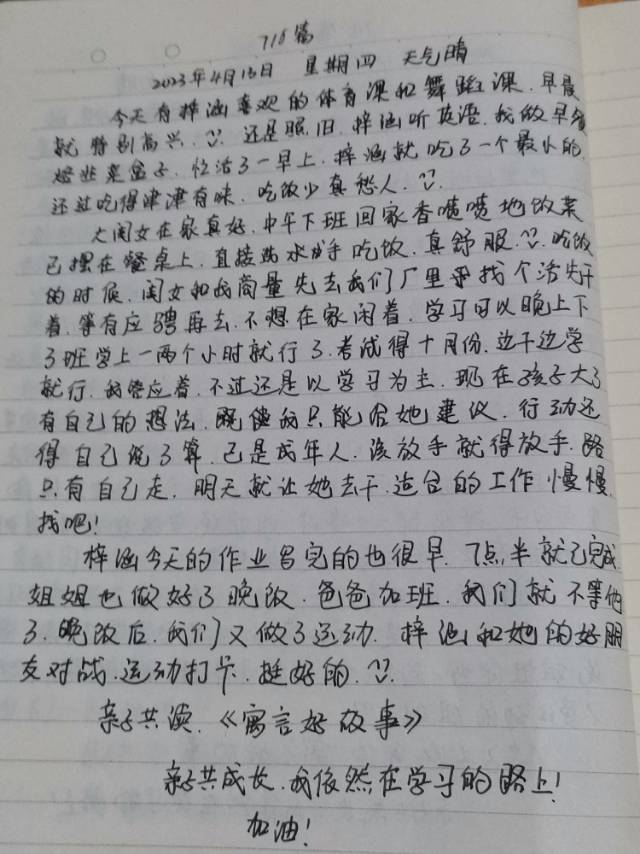 718篇
2023年4月13日 星期四 天气晴
今天有梓涵喜欢的体育课和舞蹈课.早晨
就特别高兴.还是照旧.梓涵听英语.我做早餐
忙活了一早上.梓涵就吃了一个最小的.
还过吃得津津有味.吃饭少真愁人.
大闺女在家真好.中午下班回家香喷喷地饭菜
已摆在餐桌上.直接洗水手吃饭.真舒服.吃饭
的时候.闺女和我商量先去我们厂里找个活先干
着.等有应聘再去.不想在家闲着.学习可以晚上下
了班学上一两个小时就行了.考试得十月份.边干边学
就行.我答应着.不过还是以学习为主.现在孩子大了
有自己的想法.既使我只能给她建议.行动还
得自己说了算.已是成年人.该放手就得放手.路
只有自己走.明天就让她去干.适合的工作慢慢
找吧!
梓涵今天的作业写完的也很早.7点半就已完成
姐姐也做好了晚饭.爸爸加班.我们就不等他
了.晚饭后.我们又做了运动.梓涵和她的好朋
友对战.运动打卡.挺好的.
亲子共读.《寓言好故事》
亲子共成长.我依然在学习的路上!
加油!